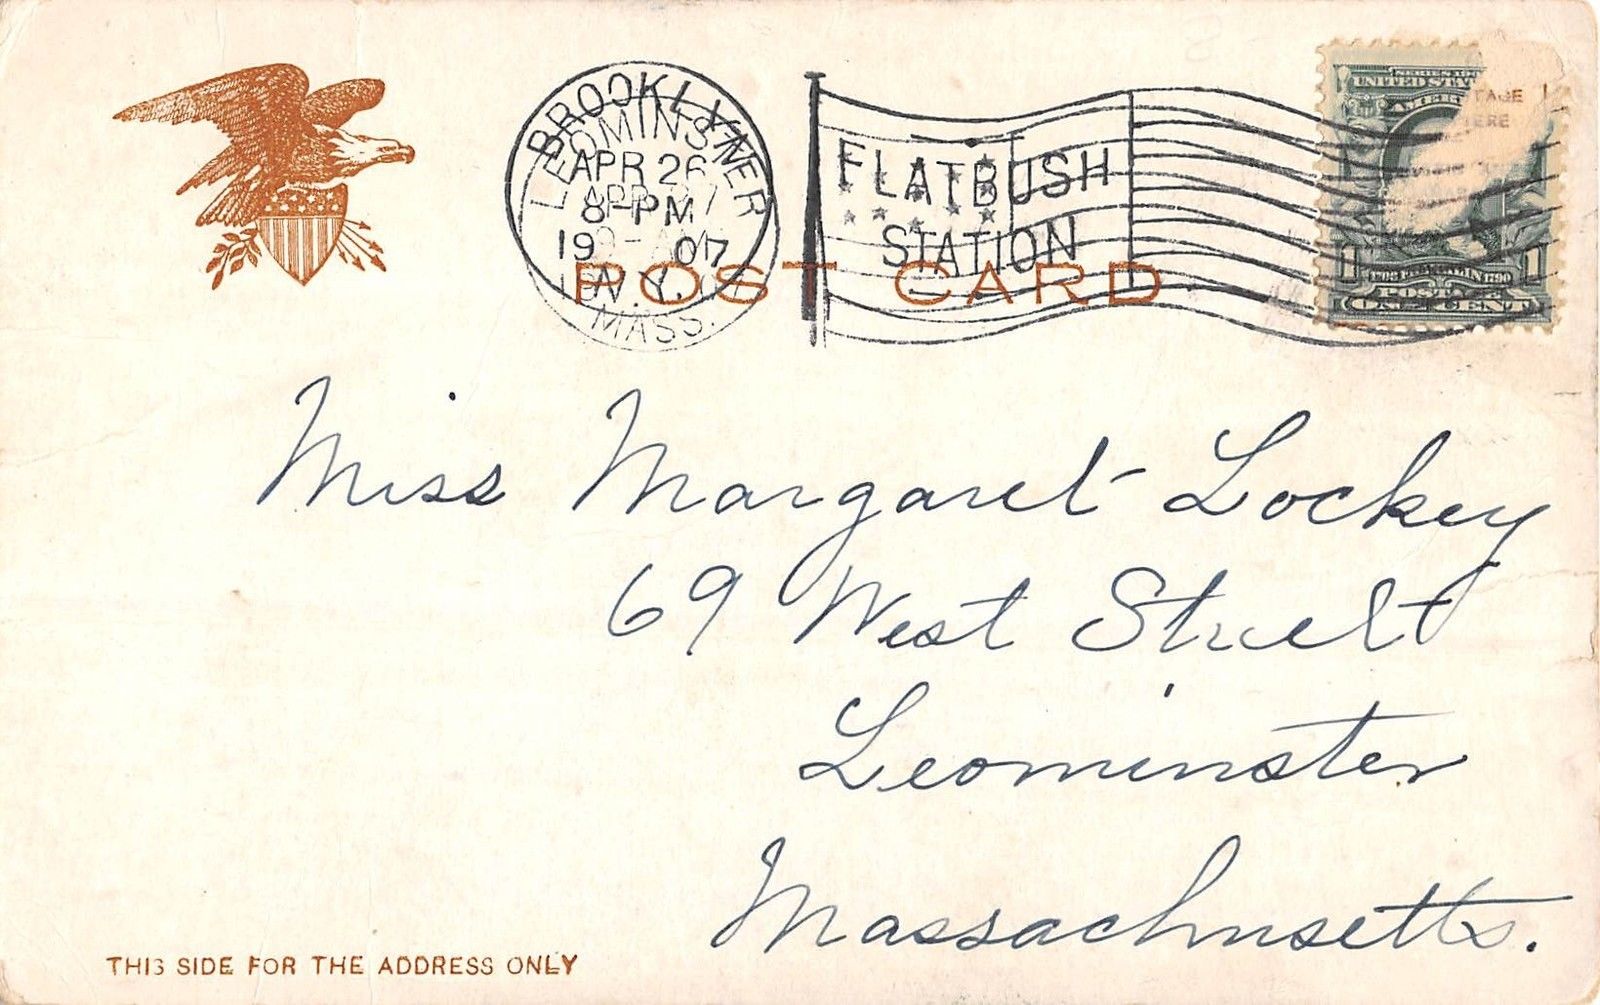 BROOKLYN
LEOMINSTER
APR 26
APR 27
8-PM
19 07
N.Y.
MASS.
FLATBUSH
STATION
UNITED STA
AMER
TAGE
ERE
1 1
POSTAGE
ONE CENT
POST CARD
Miss Margaret Lockey
69 West Street
Leominster
Massachusetts.
THIS SIDE FOR THE ADDRESS ONLY